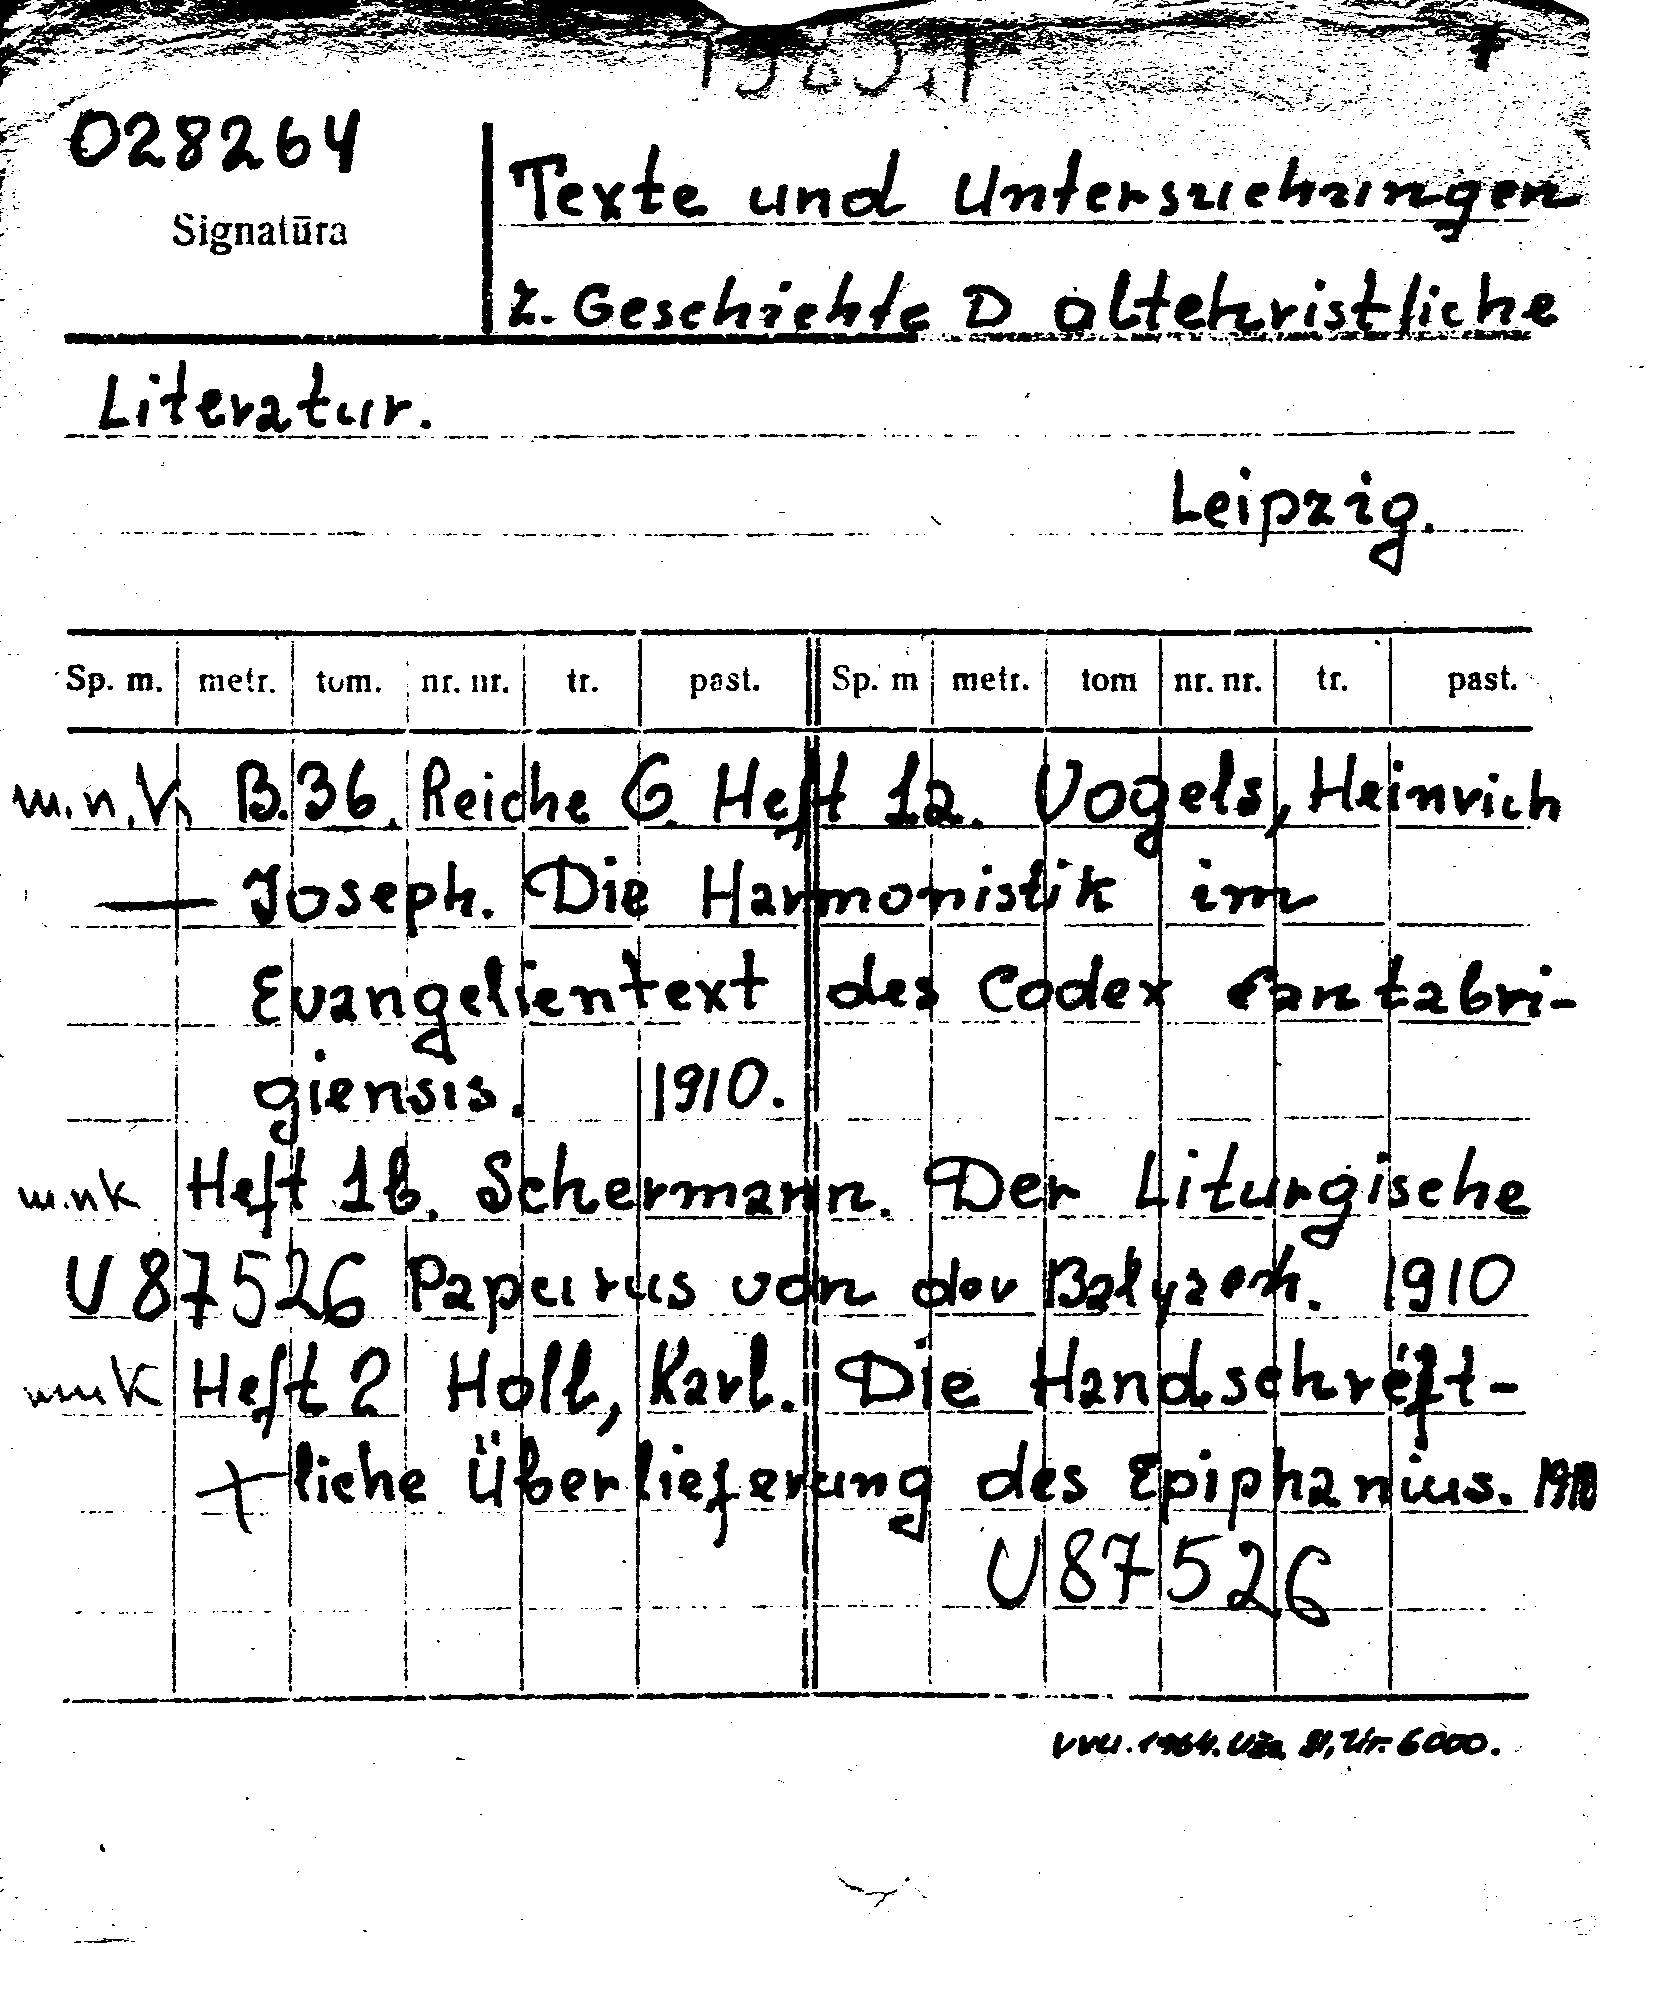 028264
Signatūra
Texte und Untersuchungen
z. Geschichte D altchristliche
Literatur.
Leipzig.
Sp. m. metr. tom. nr. nr. tr. past. Sp. m metr. tom nr. nr. tr. past.
B.36. Reiche 6. Heft 1a. Vogels, Heinrich
— Joseph. Die Harmonistik im
Evangelientext des Codex Cantabri-
giensis. 1910.
m.nk Heft 1b. Schermann. Der Liturgische
U 87526 Papeurus von der Balyzeh. 1910
Heft 2 Holl, Karl. Die Handschreift-
liche Überlieferung des Epiphanius. 1910
U 87526
6000.